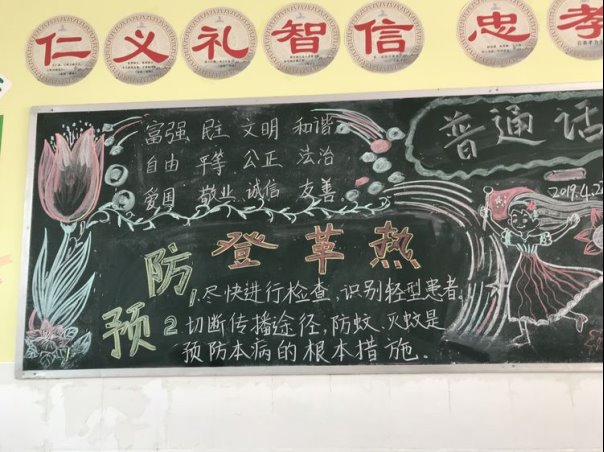 仁 义 礼 智 信 忠 孝
富强 民主 文明 和谐
自由 平等 公正 法治
爱国 敬业 诚信 友善
普通话
2019.4.2
预防
登革热
1.尽快进行检查,识别轻型患者。
2.切断传播途径,防蚊、灭蚊是
预防本病的根本措施。